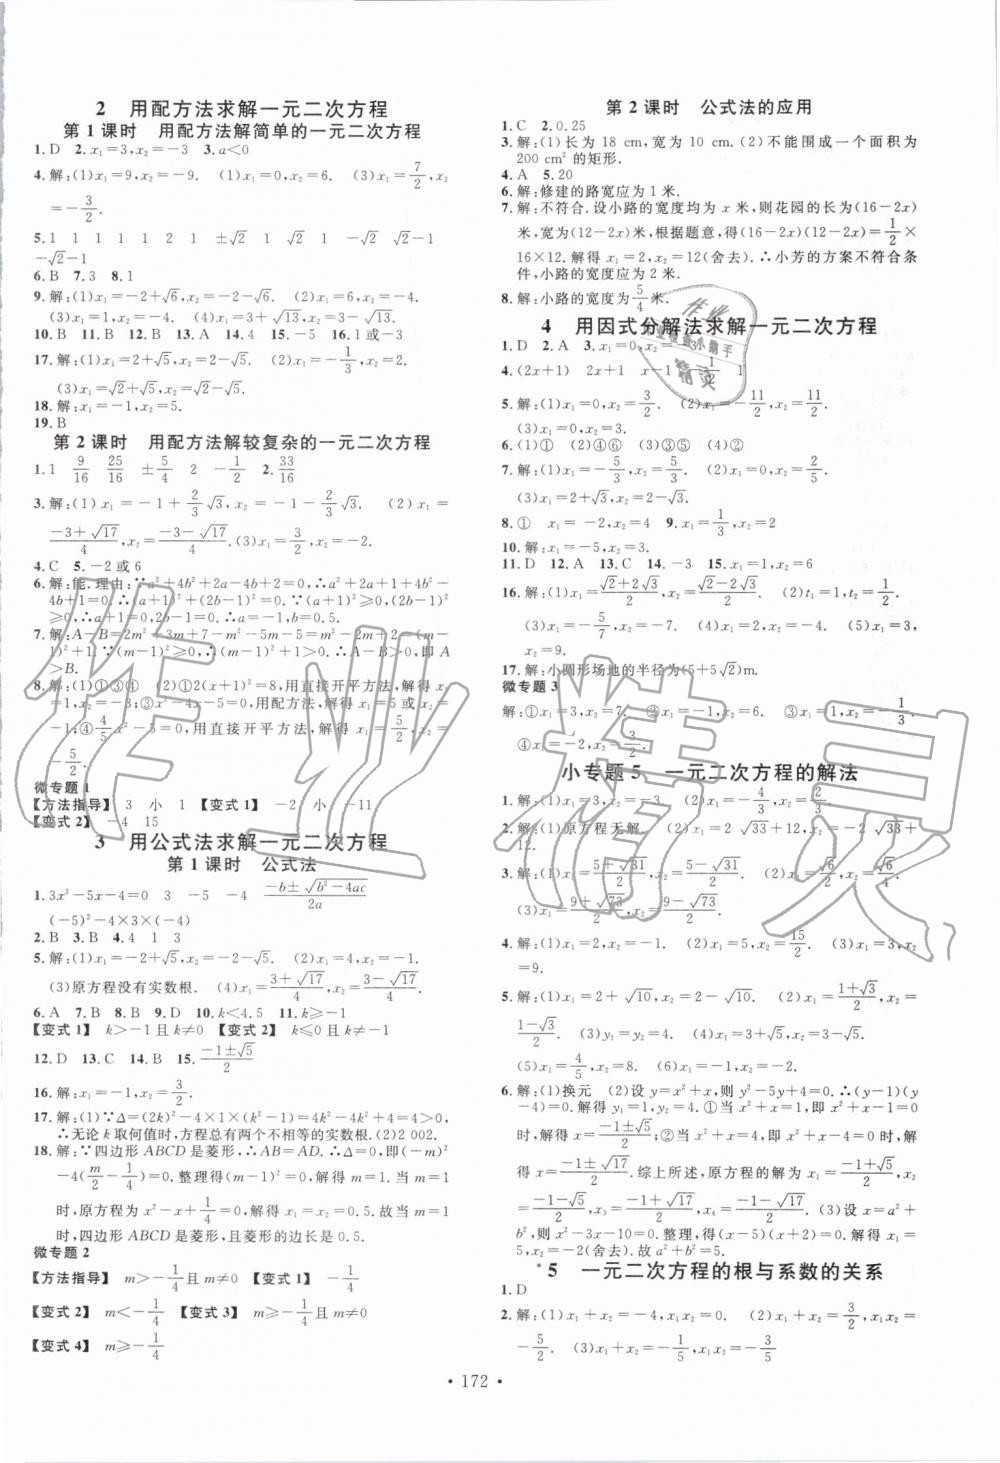 2 用配方法求解一元二次方程
第1课时 用配方法解简单的一元二次方程
1.D 2.x₁=3,x₂=-3 3.a<0
4.解:(1)x₁=9,x₂=-9. (1)x₁=0,x₂=6. (3)x₁=7/2,x₂
=-3/2.
5.1 1 1 1 2 1 ±√2 1 √2 1 -√2 √2-1
-√2-1
6.B 7.3 8.1
9.解:(1)x₁=-2+√6,x₂=-2-√6. (2)x₁=6,x₂=-4.
(3)x₁=1,x₂=-4. (4)x₁=3+√13,x₂=3-√13.
10.B 11.B 12.B 13.A 14.4 15.-5 16.1或-3
17.解:(1)x₁=2+√5,x₂=2-√5. (2)x₁=-1/3,x₂=1.
(3)x₁=√2+√5,x₂=√2-√5.
18.解:x₁=-1,x₂=5.
19.B
第2课时 用配方法解较复杂的一元二次方程
1.1 9/16 25/16 ±5/4 2 -1/2 2.33/16
3.解:(1)x₁=-1+2/3√3,x₂=-1-2/3√3. (2)x₁=
(-3+√17)/4,x₂=(-3-√17)/4.(3)x₁=x₂=2.
4.C 5.-2或6
6.解:能.理由:∵a²+4b²+2a-4b+2=0,∴a²+2a+1+4b²-
4b+1=0.∴(a+1)²+(2b-1)²=0.∵(a+1)²≥0,(2b-1)²
≥0,∴a+1=0,2b-1=0.∴a=-1,b=0.5.
7.解:A-B=2m²+3m+7-m²-5m-5=m²-2m+2=(m-
1)²+1.∵(m-1)²≥0,∴(m-1)²+1>0.∴A-B>0,即A
>B.
8.解:(1)①③④ (2)②2(x+1)²=8,用直接开平方法,解得x₁
=1,x₂=-3;③x²-4x-5=0,用配方法,解得x₁=5或x₂=
-1;④4/5x²-5=0,用直接开平方法,解得x₁=5/2,x₂=
-5/2.
微专题1
【方法指导】 3 小 1 【变式1】 -2 小 -11
【变式2】 -4 15
3 用公式法求解一元二次方程
第1课时 公式法
1.3x²-5x-4=0 3 -5 -4 (-b±√(b²-4ac))/2a
(-5)²-4×3×(-4)
2.B 3.B 4.4 1 3
5.解:(1)x₁=-2+√5,x₂=-2-√5. (2)x₁=4,x₂=-1.
(3)原方程没有实数根. (4)x₁=(3+√17)/4,x₂=(3-√17)/4.
6.A 7.B 8.B 9.D 10.k<4.5 11.k≥-1
【变式1】 k>-1且k≠0 【变式2】 k≤0且k≠-1
12.D 13.C 14.B 15.(-1±√5)/2
16.解:x₁=-1,x₂=3/2.
17.解:(1)∵Δ=(2k)²-4×1×(k²-1)=4k²-4k²+4=4>0,
∴无论k取何值时,方程总有两个不相等的实数根.(2)2 002.
18.解:∵四边形ABCD是菱形,∴AB=AD.∴Δ=0,即(-m)²
-4(m/2-1/4)=0.整理得(m-1)²=0,解得m=1.当m=1
时,原方程为x²-x+1/4=0,解得x₁=x₂=0.5.故当m=1
时,四边形ABCD是菱形,菱形的边长是0.5.
微专题2
【方法指导】 m>-1/4且m≠0 【变式1】 -1/4
【变式2】 m<-1/4 【变式3】 m≥-1/4且m≠0
【变式4】 m≥-1/4
第2课时 公式法的应用
1.C 2.0.25
3.解:(1)长为18 cm,宽为10 cm.(2)不能围成一个面积为
200 cm²的矩形.
4.A 5.20
6.解:修建的路宽应为1米.
7.解:不符合.设小路的宽度均为x米,则花园的长为(16-2x)
米,宽为(12-2x)米,根据题意,得(16-2x)(12-2x)=1/2×
16×12.解得x₁=2,x₂=12(舍去).∴小芳的方案不符合条
件,小路的宽度应为2米.
8.解:小路的宽度为5/4米.
4 用因式分解法求解一元二次方程
1.D 2.A 3.x₁=0,x₂=
4.(2x+1) 2x+1 x-1 -1/2 1
5.解:(1)x₁=0,x₂=3/4. (2)x₁=-11/2,x₂=11/2.
(3)x₁=0,x₂=3.
6.(1)① (2)④⑥ (3)③⑤ (4)②
7.解:(1)x₁=-5/3,x₂=5/3. (2)x₁=4,x₂=-2.
(3)x₁=2+√3,x₂=2-√3.
8.① x₁=-2,x₂=4 9.x₁=1/3,x₂=2
10.解:x₁=-5,x₂=3.
11.D 12.A 13.C 14.-3 15.x₁=1,x₂=6
16.解:(1)x₁=(√2+2√3)/2,x₂=(√2-2√3)/2. (2)t₁=1,t₂=1/4.
(3)x₁=-5/7,x₂=0. (4)x₁=-4,x₂=2. (5)x₁=3,
x₂=9.
17.解:小圆形场地的半径为(5+5√2)m.
微专题3
解:①x₁=3,x₂=7. ②x₁=-1,x₂=6. ③x₁=1,x₂=-1/3.
④x₁=-2,x₂=3/2.
小专题5 一元二次方程的解法
1.解:(1)x₁=3,x₂=-3. (2)x₁=-4/3,x₂=2/3.
2.解:(1)原方程无解. (2)x₁=2√33+12,x₂=-2√33+
12.
3.解:(1)x₁=(5+√31)/3,x₂=(5-√31)/3. (2)x₁=√6/2,x₂=√6/4.
(3)x₁=(9+√73)/2,x₂=(9-√73)/2.
4.解:(1)x₁=2,x₂=-1. (2)x₁=5,x₂=15/2. (3)x₁=3,x₂
=9.
5.解:(1)x₁=2+√10,x₂=2-√10. (2)x₁=(1+√3)/2,x₂=
(1-√3)/2. (3)y₁=y₂=4. (4)x₁=3+√5,x₂=3-√5.
(5)x₁=4/5,x₂=8. (6)x₁=-1,x₂=-2.
6.解:(1)换元 (2)设y=x²+x,则y²-5y+4=0.∴(y-1)(y
-4)=0.解得y₁=1,y₂=4.①当x²+x=1,即x²+x-1=0
时,解得x=(-1±√5)/2;②当x²+x=4,即x²+x-4=0时,解
得x=(-1±√17)/2.综上所述,原方程的解为x₁=(-1+√5)/2,x₂=
(-1-√5)/2,x₃=(-1+√17)/2,x₄=(-1-√17)/2. (3)设x=a²+
b²,则原方程为x²-3x-10=0.整理,得(x-5)(x+2)=0,解得x₁=
5,x₂=-2(舍去).故a²+b²=5.
*5 一元二次方程的根与系数的关系
1.D
2.解:(1)x₁+x₂=-4,x₁x₂=0. (2)x₁+x₂=3/2,x₁x₂=
-5/2. (3)x₁+x₂=-1/5,x₁x₂=-3/5
· 172 ·
作业
精灵
作业精灵